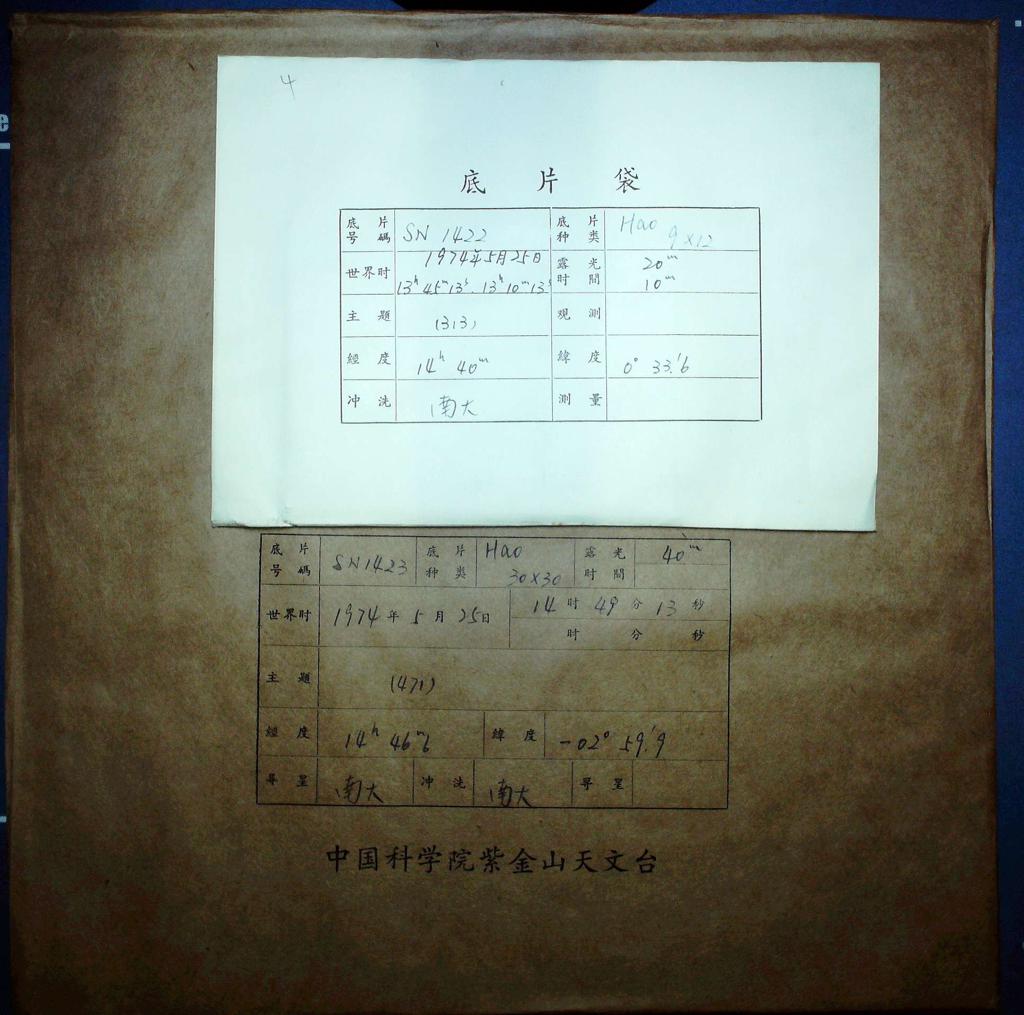 e
4
底片袋
底片号碼 SN 1422 底片种类 Hao 9×12
世界时 1974年5月25日 13ʰ 45ᵐ 13ˢ. 13ʰ 10ᵐ 13ˢ 露光时間 20ᵐ 10ᵐ
主題 (313) 观测
經度 14ʰ 40ᵐ 緯度 0° 33.'6
冲洗 南大 测量
底片号碼 SN1423 底片种类 Hao 30×30 露光时間 40ᵐ
世界时 1974年5月25日 14时49分13秒
时 分 秒
主題 (471)
經度 14ʰ 46ᵐ6 緯度 -02° 59.'9
寻星 南大 冲洗 南大 寻星
中国科学院紫金山天文台